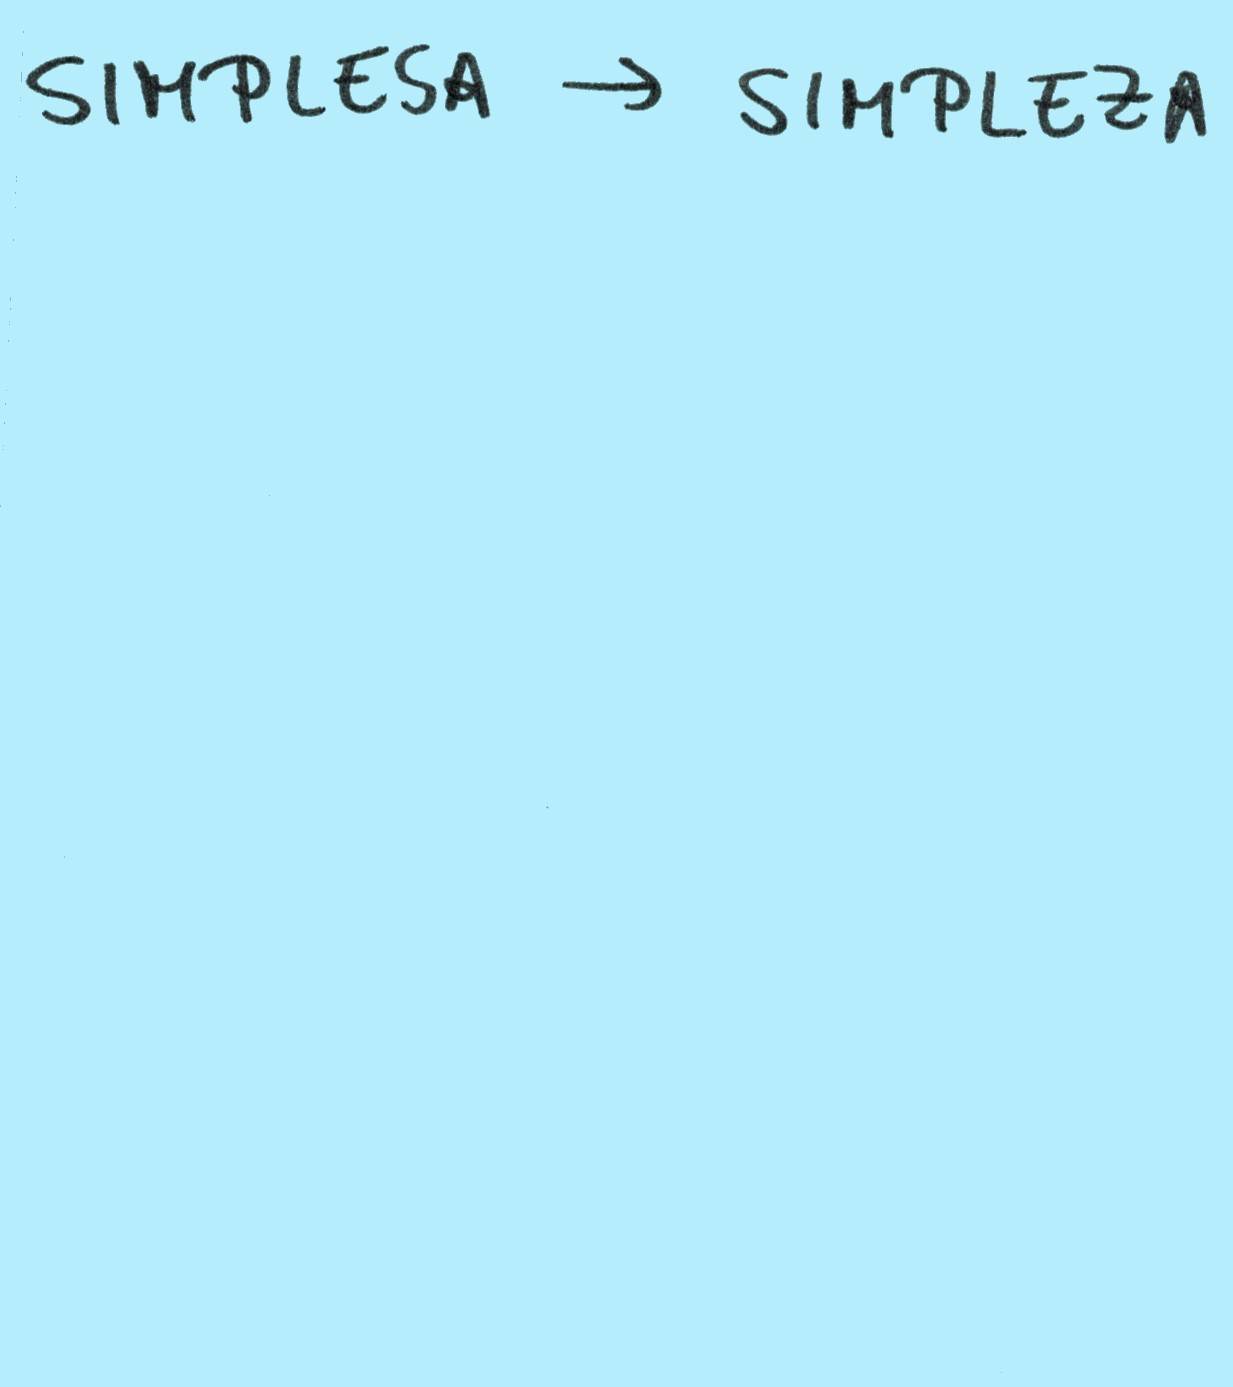 SIMPLESA → SIMPLEZA